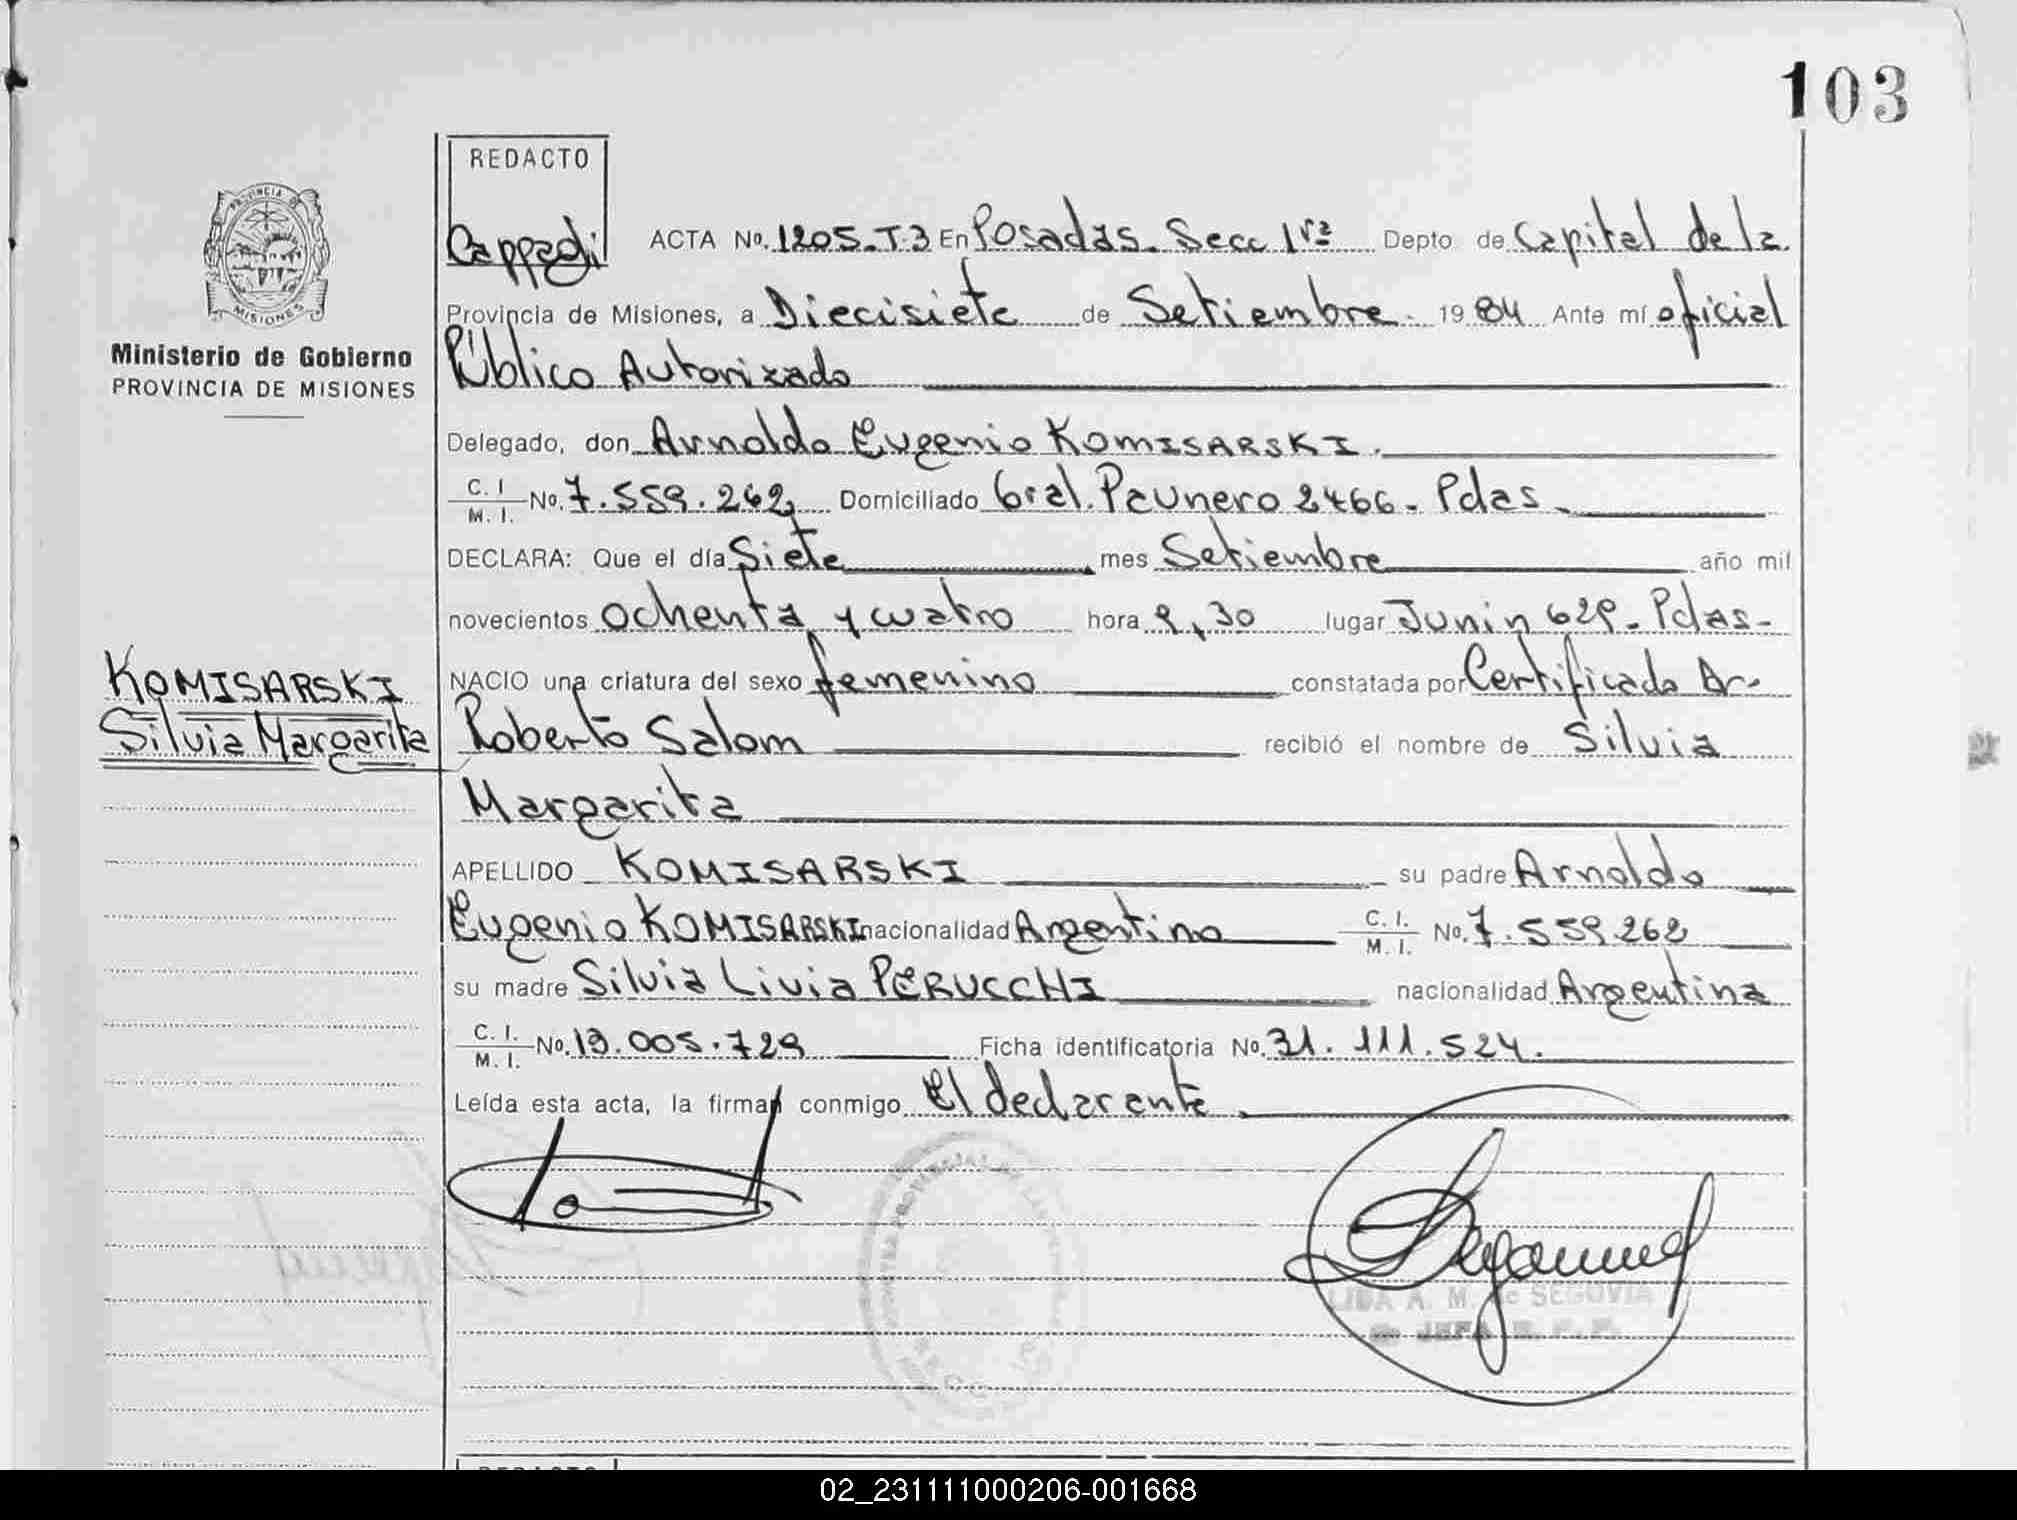 103
REDACTO
PROVINCIA DE
MISIONES
Ministerio de Gobierno
PROVINCIA DE MISIONES
ACTA No. 1205-T.3 En Posadas. Secc 1ra Depto de Capital de la
Provincia de Misiones, a Diecisiete de Setiembre 1984 Ante mí oficial
Público Autorizado
Delegado, don Arnoldo Eugenio KOMISARSKI.
C. I. M. I. No. 7.559.262 Domiciliado Gral. Paunero 2466 - Pdas -
DECLARA: Que el día Siete mes Setiembre año mil
novecientos ochenta y cuatro hora 9,30 lugar Junin 629 - Pdas -
NACIO una criatura del sexo femenino constatada por Certificado Dr.
Roberto Salom recibió el nombre de Silvia
Margarita
KOMISARSKI
Silvia Margarita
APELLIDO KOMISARSKI su padre Arnoldo
Eugenio KOMISARSKI nacionalidad Argentino C. I. M. I. No. 7.559.262
su madre Silvia Livia PERUCCHI nacionalidad Argentina
C. I. M. I. No. 13.005.729 Ficha identificatoria No. 31.111.524.
Leída esta acta, la firman conmigo El declarante
LIDA A. M. de SEGOVIA
JEFA
REDACTO
02_231111000206-001668